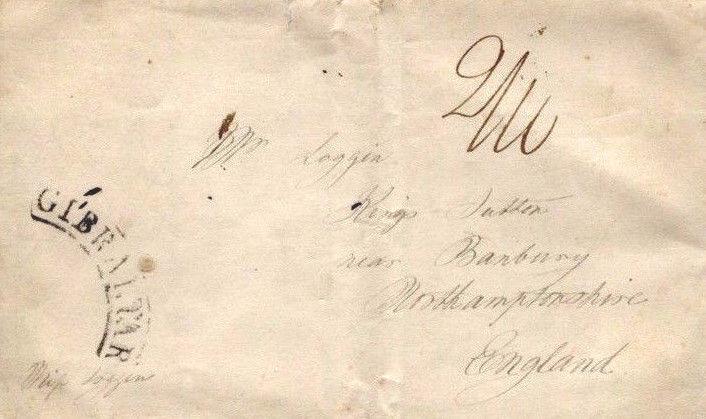 2/10
Mrs Loggin
Kings Sutton
near Banbury
Northamptonshire
England
GIBRALTAR
Miss Loggin